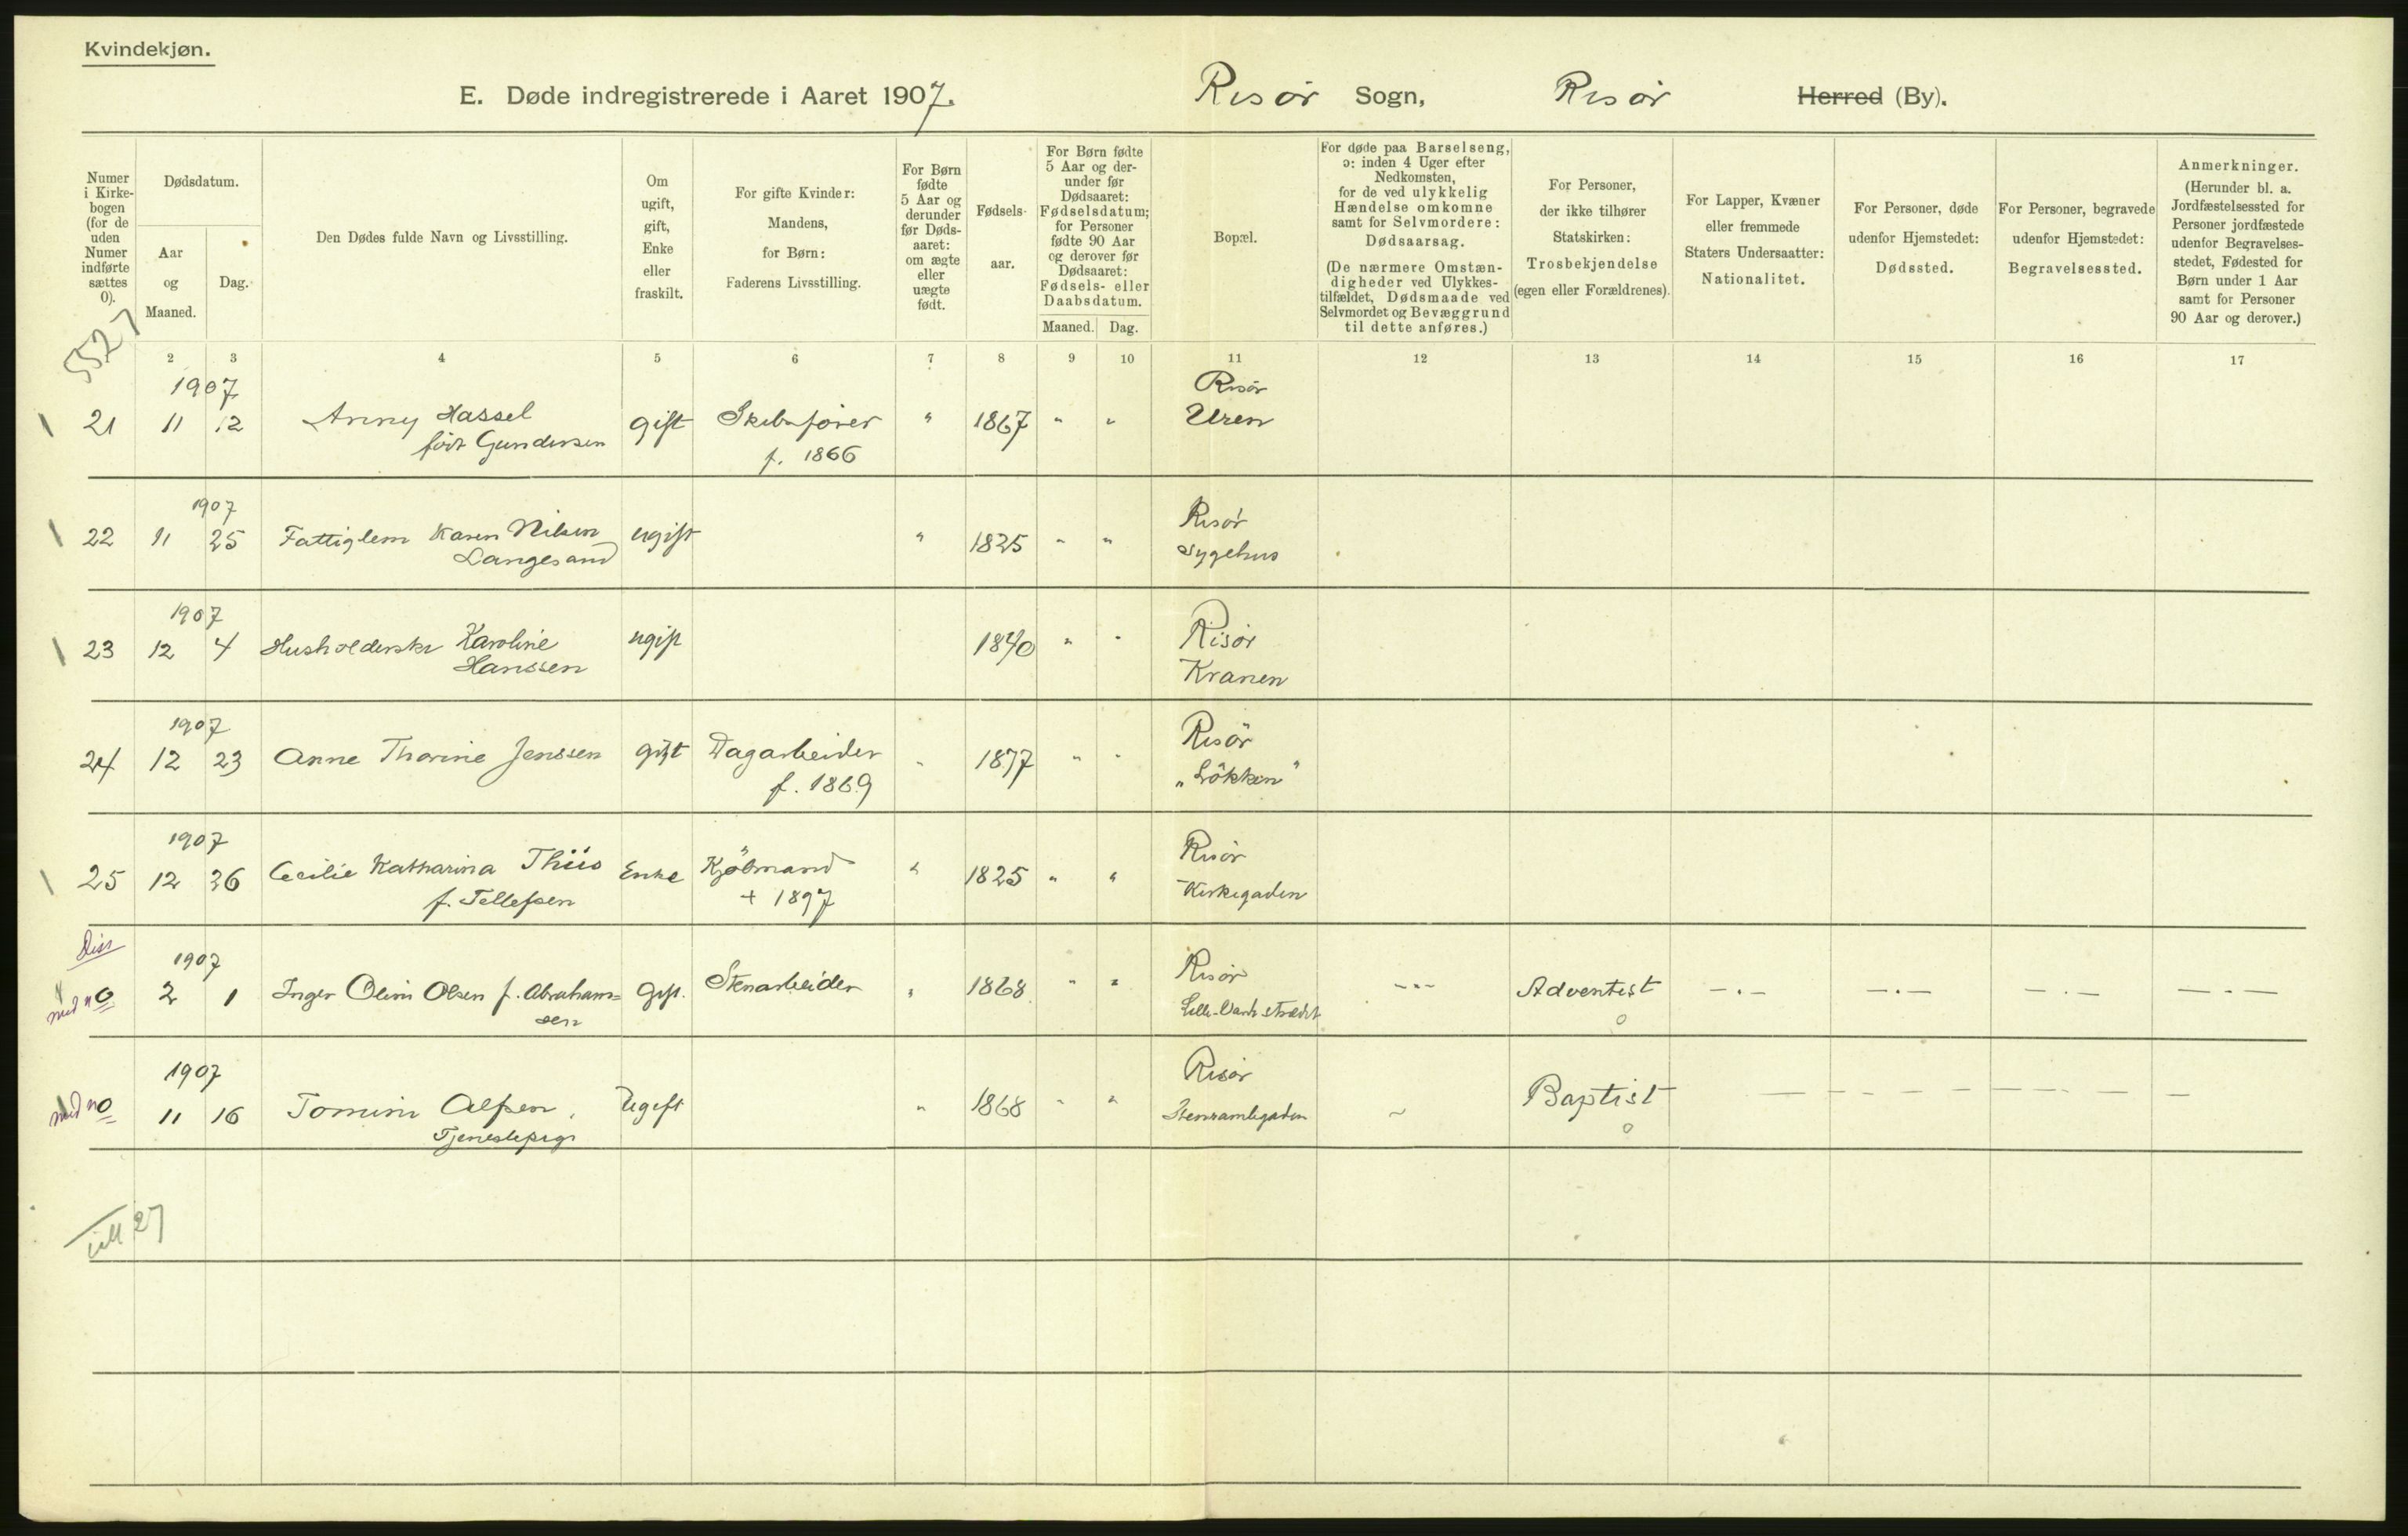 Kvindekjøn.
E. Døde indregistrerede i Aaret 1907. Risør Sogn, Risør Herred (By).
Numer i Kirke-
bogen
(for de
uden
Numer
indførte
sættes
0).
Dødsdatum.
Aar
og
Maaned.
Dag.
Den Dødes fulde Navn og Livsstilling.
Om
ugift,
gift,
Enke
eller
fraskilt.
For gifte Kvinder:
Mandens,
for Børn:
Faderens Livsstilling.
For Børn
fødte
5 Aar og
derunder
før Døds-
aaret:
om ægte
eller
uægte
født.
Fødsels-
aar.
For Børn fødte
5 Aar og der-
under før
Dødsaaret:
Fødselsdatum;
for Personer
fødte 90 Aar
og derover før
Dødsaaret:
Fødsels- eller
Daabsdatum.
Maaned. Dag.
Bopæl.
For døde paa Barselseng,
ɔ: inden 4 Uger efter
Nedkomsten,
for de ved ulykkelig
Hændelse omkomne
samt for Selvmordere:
Dødsaarsag.
(De nærmere Omstæn-
digheder ved Ulykkes-
tilfældet, Dødsmaade ved
Selvmordet og Bevæggrund
til dette anføres.)
For Personer,
der ikke tilhører
Statskirken:
Trosbekjendelse
(egen eller Forældrenes).
For Lapper, Kvæner
eller fremmede
Staters Undersaatter:
Nationalitet.
For Personer, døde
udenfor Hjemstedet:
Dødssted.
For Personer, begravede
udenfor Hjemstedet:
Begravelsessted.
Anmerkninger.
(Herunder bl. a.
Jordfæstelsessted for
Personer jordfæstede
udenfor Begravelses-
stedet, Fødested for
Børn under 1 Aar
samt for Personer
90 Aar og derover.)
2 3 4 5 6 7 8 9 10 11 12 13 14 15 16 17
1907 Risør
21 11 12 Anny Hassel gift Skibsfører " 1867 " " Uren
født Gundersen f. 1866
1907 Risør
22 11 25 Fattiglem Karen Nilsen ugift " 1825 " " Sygehus
Langesand
1907 Risør
23 12 4 Husholderske Karoline ugift 1840 " " Kranen
Hanssen
1907 Risør
24 12 23 Anne Thorine Jenssen gift Dagarbeider " 1877 " " „Løkken"
f. 1869
1907 Risør
25 12 26 Cecilie Katharina Thiis Enke Kjøbmand " 1825 " " Kirkegaden
f. Tellefsen + 1897
Diss
1907 Risør
0 2 1 Inger Olini Olsen f. Abraham= Gift. Stenarbeider " 1868 " " Adventist
sen
1907 Risør
0 11 16 Tomini Alfsen, Ugift " 1868 " " Baptist
Tjenestepige
27